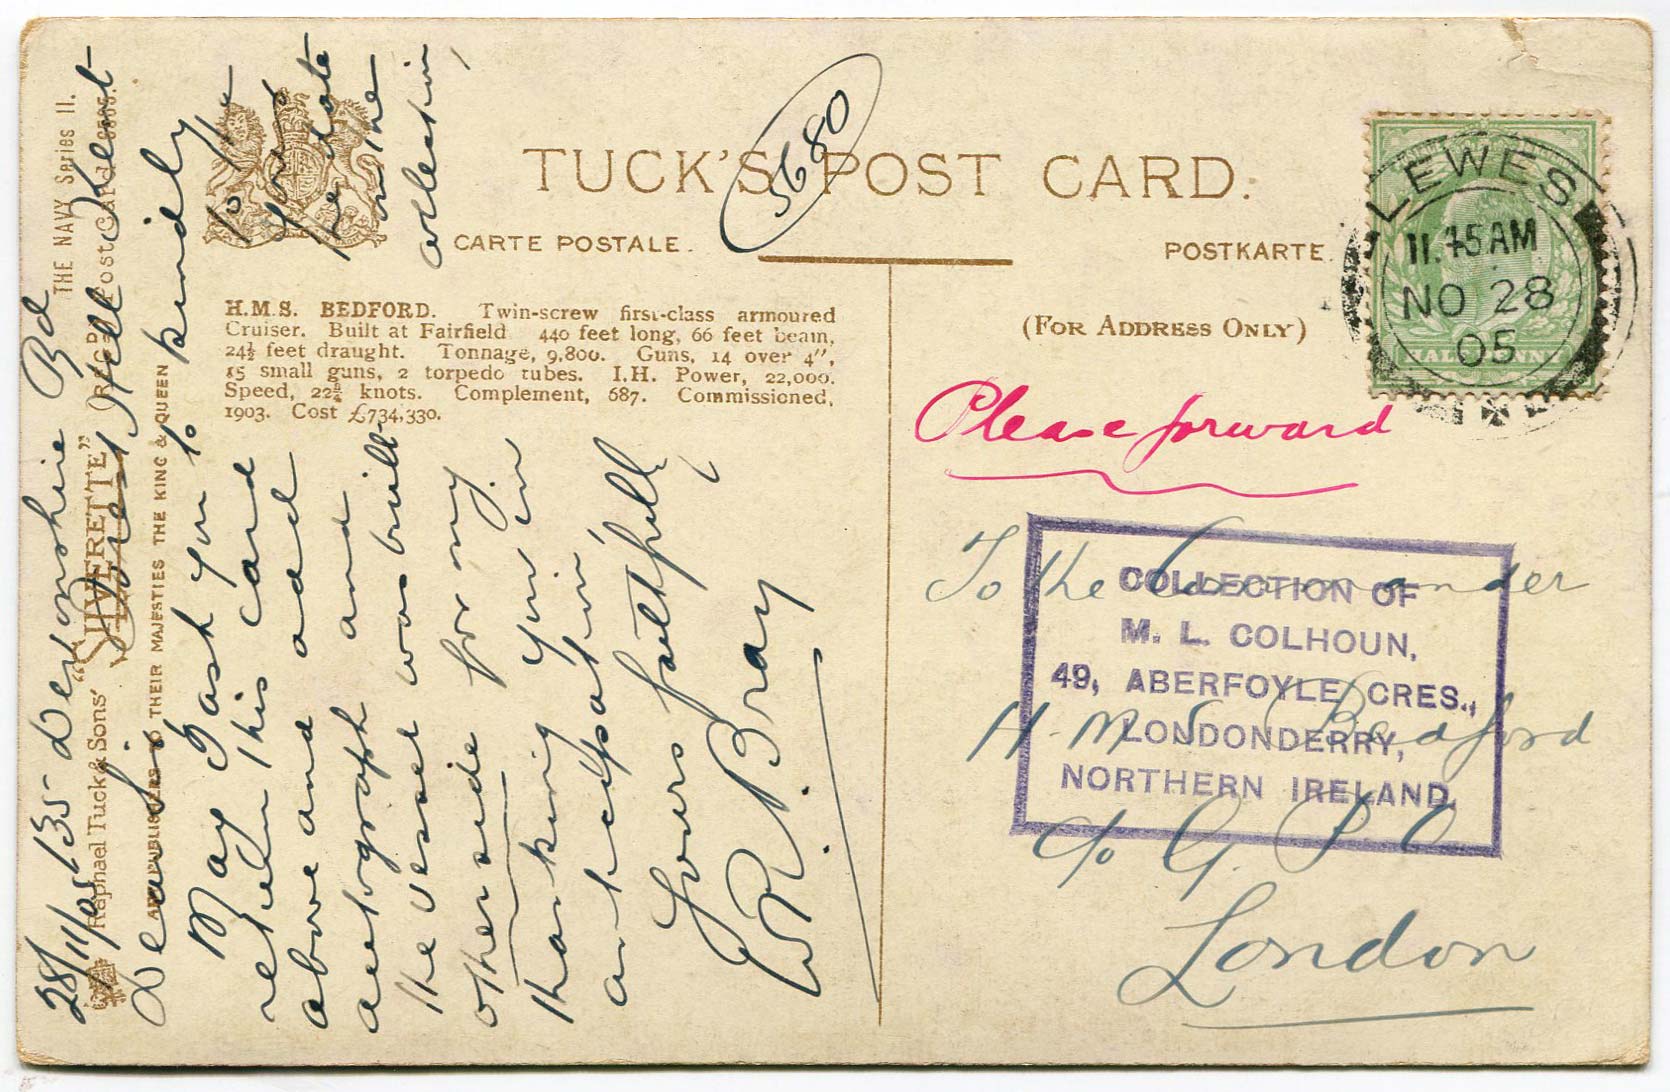 TUCK'S POST CARD.
CARTE POSTALE.
POSTKARTE
(FOR ADDRESS ONLY)
5680
LEWES
11.45AM
NO 28
05
HALFPENNY
THE NAVY Series II.
Raphael Tuck & Sons' "SILVERETTE" Post Card
ART PUBLISHERS TO THEIR MAJESTIES THE KING & QUEEN
H.M.S. BEDFORD. Twin-screw first-class armoured
Cruiser. Built at Fairfield 440 feet long, 66 feet beam,
24½ feet draught. Tonnage, 9,800. Guns, 14 over 4",
15 small guns, 2 torpedo tubes. I.H. Power, 22,000.
Speed, 22¾ knots. Complement, 687. Commissioned,
1903. Cost £734,330.
28/11/05 135 Devonshire Rd
Forest Hill Kent
Dear Sir
May I ask you to kindly
return this card to the
above and add your
autograph and the date
the vessel was built on the
other side for my collection,
thanking you in
anticipation,
Yours faithfully
W. R. Bray
Please forward
To the Commander
H.M.S. Bedford
c/o G. P. O
London
COLLECTION OF
M. L. COLHOUN,
49, ABERFOYLE CRES.,
LONDONDERRY,
NORTHERN IRELAND.